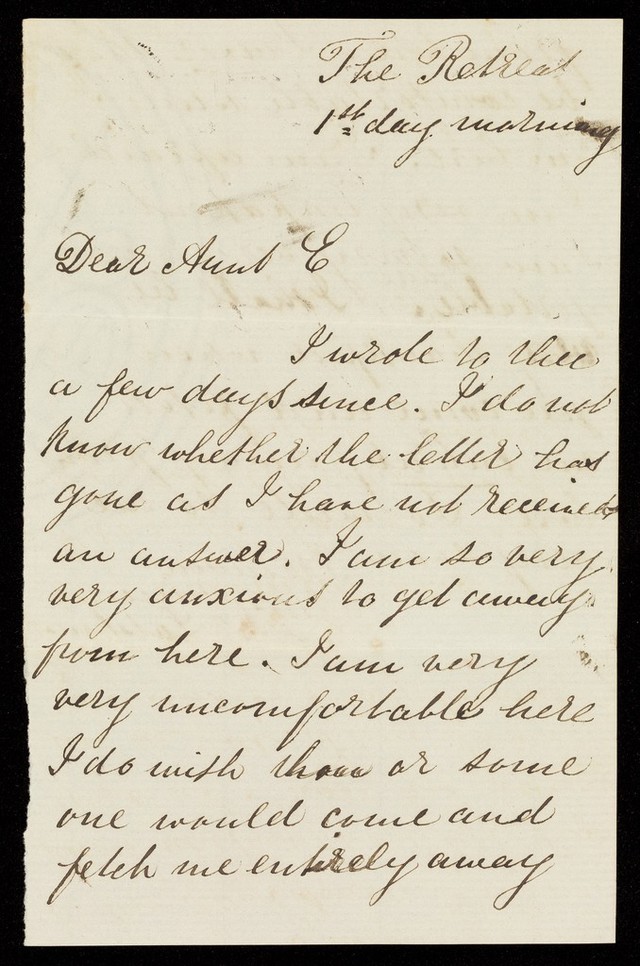 The Retreat
1st day morning
Dear Aunt E
I wrote to thee
a few days since. I do not
know whether the letter has
gone as I have not received
an answer. I am so very
very anxious to get away
from here. I am very
very uncomfortable here
I do wish thou or some
one would come and
fetch me entirely away